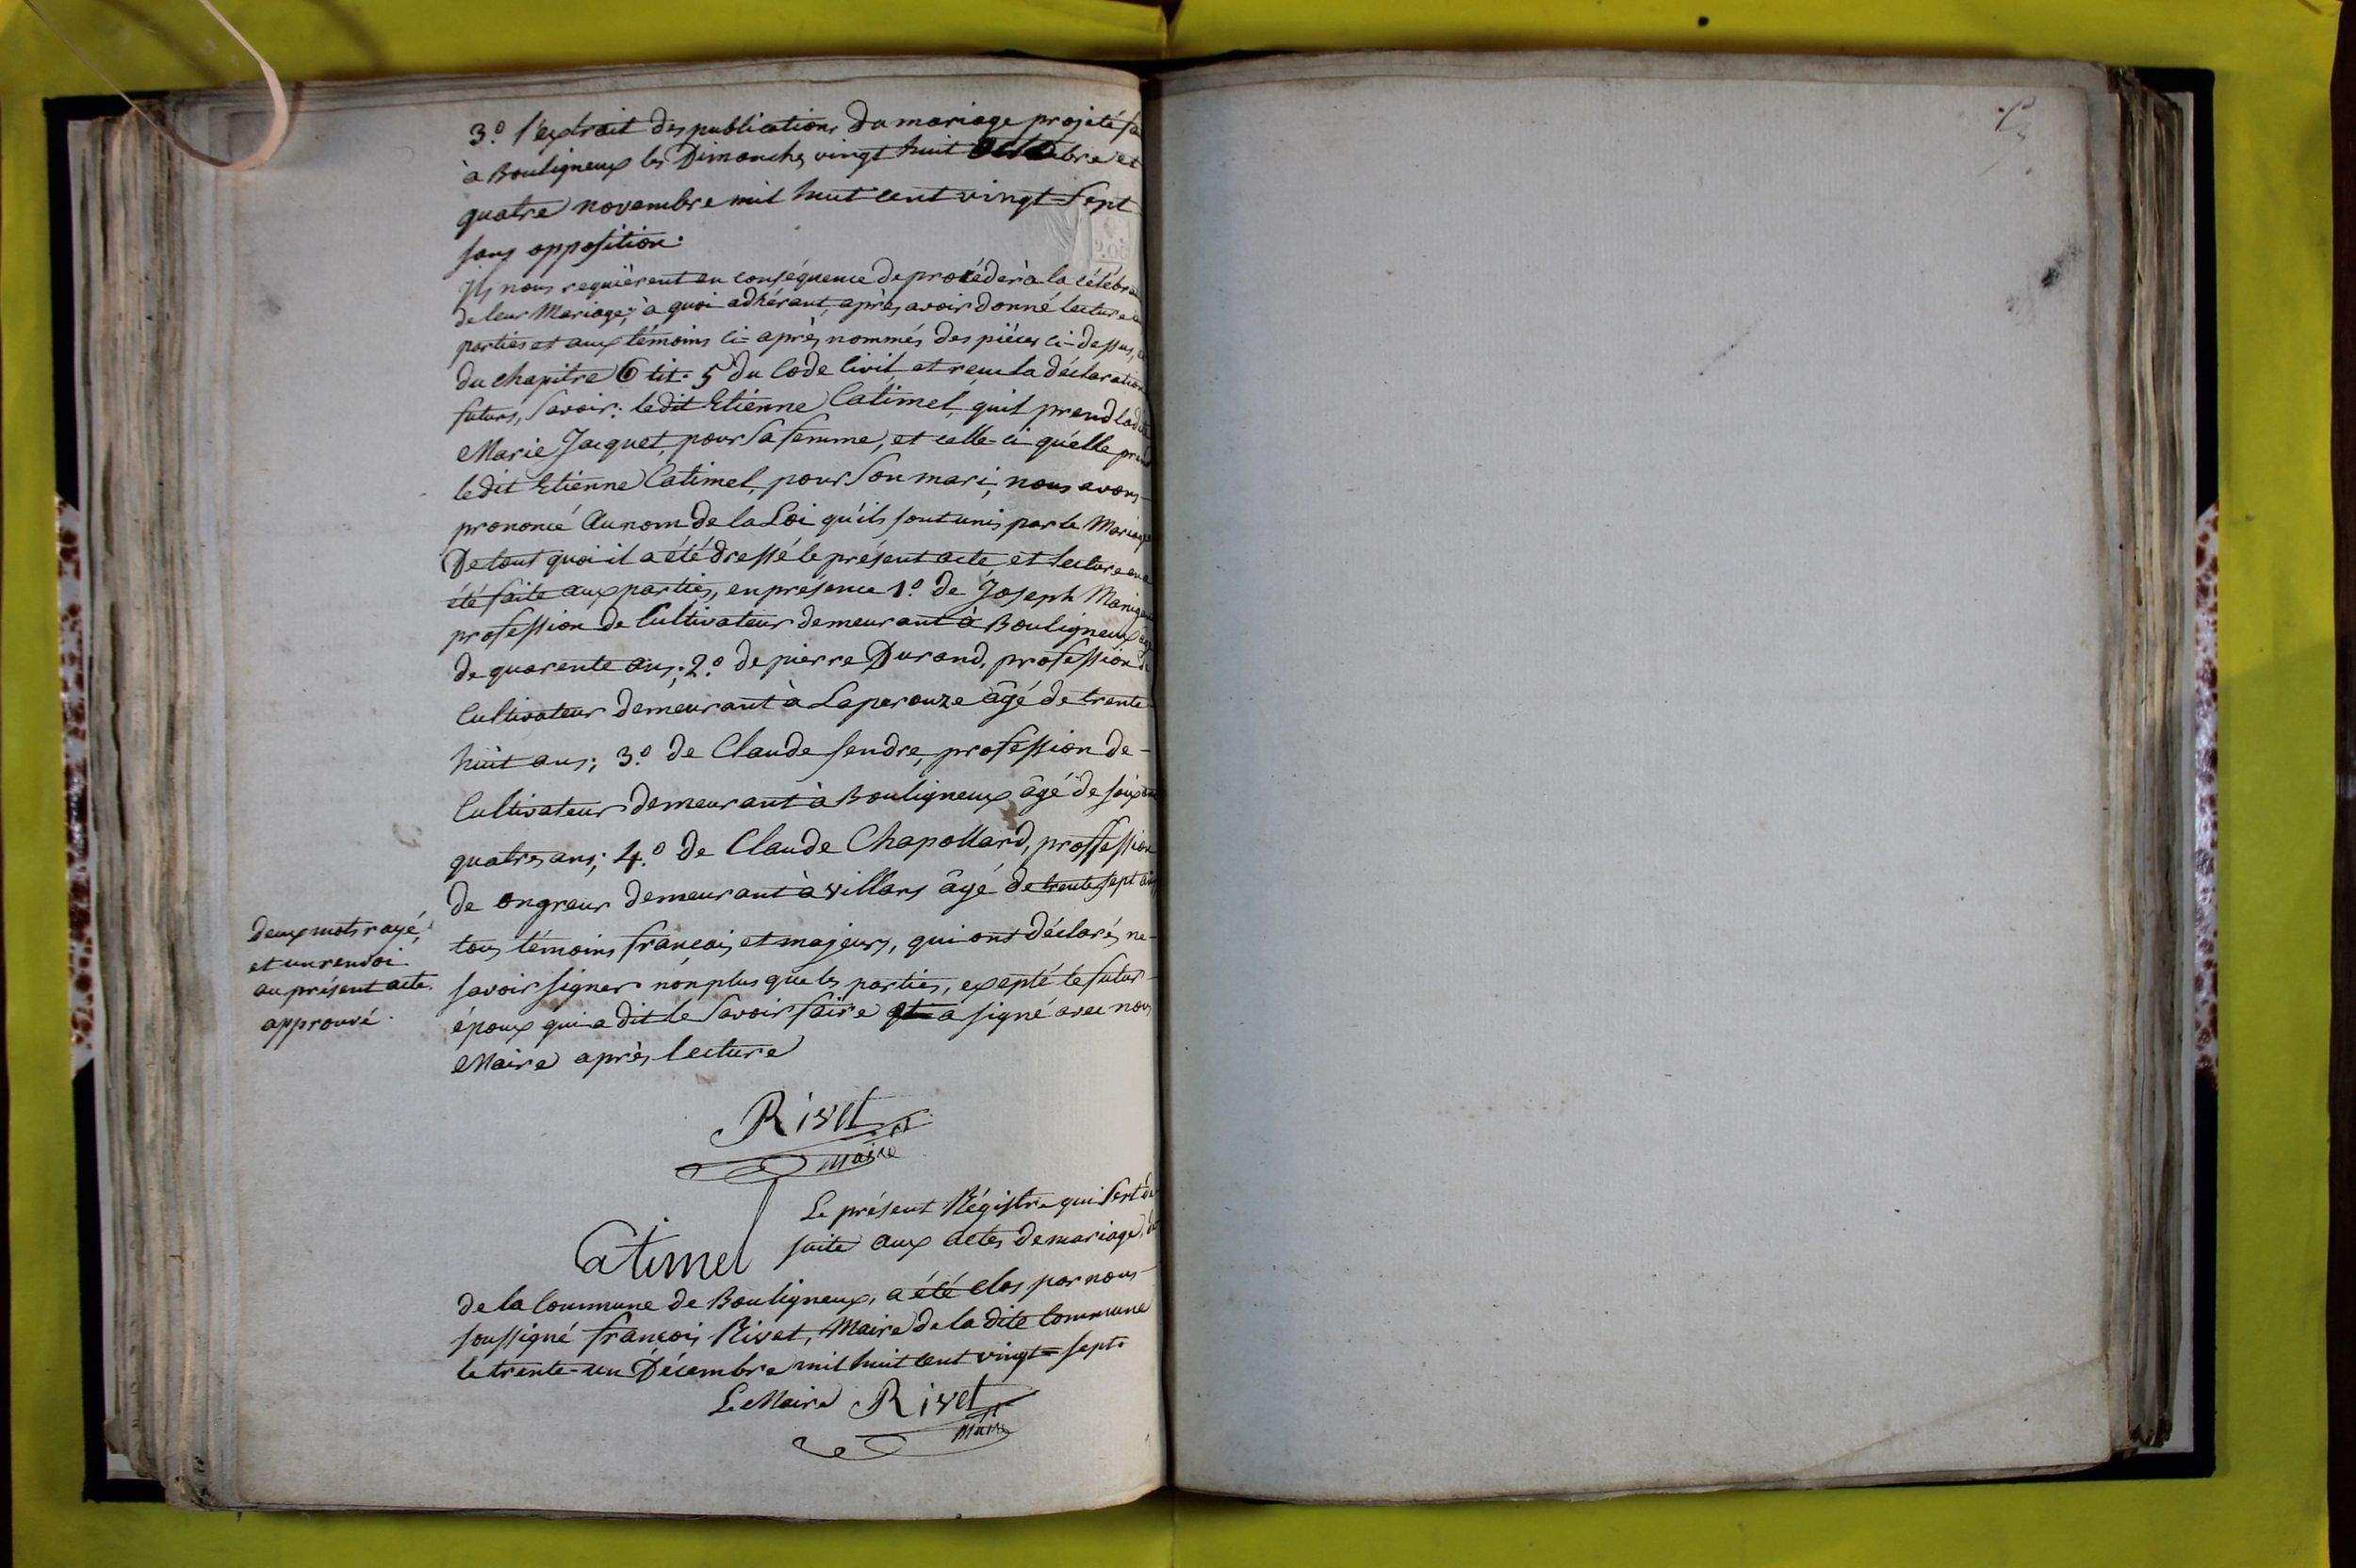 3.º l'extrait des publications du mariage projeté
à Bouligneux les Dimanches vingt huit Octobre et
quatre novembre mil huit cent vingt=sept
sans opposition.
Ils nous requièrent en conséquence de procéder à la
de leur Mariage; à quoi adhérant, après avoir donné lecture
parties et aux témoins ci-après nommés des pièces ci-dessus,
du chapitre 6 tit. 5 du Code Civil et reçu la déclaration
futurs, savoir: ledit Etienne Catimel, qu'il prend ladite
Marie Jacquet, pour sa femme, et celle-ci qu'elle prend
ledit Etienne Catimel, pour son mari, nous avons-
prononcé Au nom de la Loi qu'ils sont unis par le Mariage
De tout quoi il a été dressé le présent acte et lecture en a
été faite aux parties, en présence 1.º de Joseph
profession de Cultivateur demeurant à Bouligneux
de quarente ans; 2.º de pierre Durand, profession de
Cultivateur demeurant à Laperouze âgé de trente
huit ans; 3.º de Claude fendre, profession de-
Cultivateur demeurant à Bouligneux âgé de
quatres ans; 4.º de Claude Chapolland, proffession
de ongreur demeurant à villars âgé de trente sept ans
tous témoins français et majeurs, qui ont déclarés ne-
savoir signer non plus que les parties, exepté le futur-
époux qui a dit le savoir faire et a signé avec nous
Maire après lecture
deux mots rayé,
et un renvoi
au présent acte.
approuvé.
Rivet
Maire
Catimel
Le présent Régistre qui sert de
suite aux actes de mariage,
de la Commune de Bouligneux, a été clos par nous-
soussigné françois Rivet, Maire de la dite Commune
le trente-un Décembre mil huit cent vingt=sept.
Le Maire Rivet
Maire